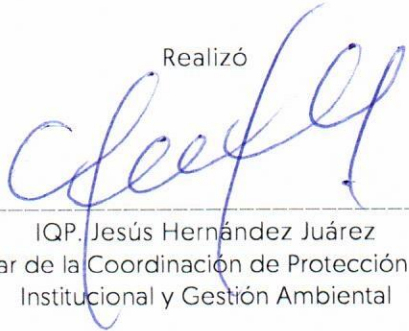 Realizó
IQP. Jesús Hernández Juárez
ar de la Coordinación de Protección
Institucional y Gestión Ambiental